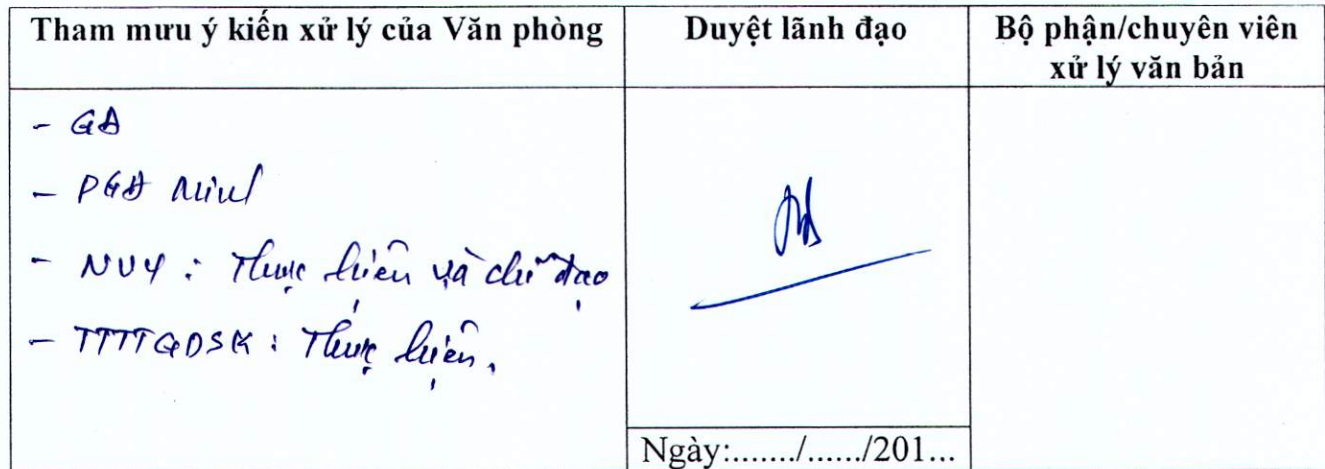 Tham mưu ý kiến xử lý của Văn phòng
Duyệt lãnh đạo
Bộ phận/chuyên viên
xử lý văn bản
- GĐ
- PGĐ Minh
- NVY : Thực hiện và chỉ đạo
- TTTTGDSK : Thực hiện.
Ngày:......./....../201...